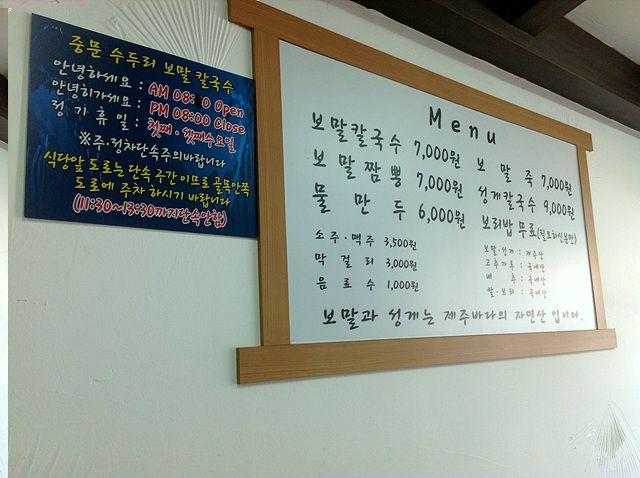 중문 수두리 보말 칼국수
안녕하세요 : AM 08: 0 Open
안녕히가세요 : PM 08:00 Close
정기휴일 : 첫째·셋째수요일
※주·정차단속주의바랍니다
식당앞 도로는 단속구간이므로 골목안쪽
도로에 주차하시기 바랍니다
(11:30~13:30까지단속안함)
Menu
보말칼국수 7,000원
보말짬뽕 7,000원
물만두 6,000원
소주·맥주 3,500원
막걸리 3,000원
음료수 1,000원
보말죽 7,000원
성게칼국수 9,000원
보리밥 무료(필요하신분만)
보말·성게 : 제주산
고추가루 : 국내산
배추 : 국내산
쌀·보리 : 국내산
보말과 성게는 제주바다의 자연산 입니다.